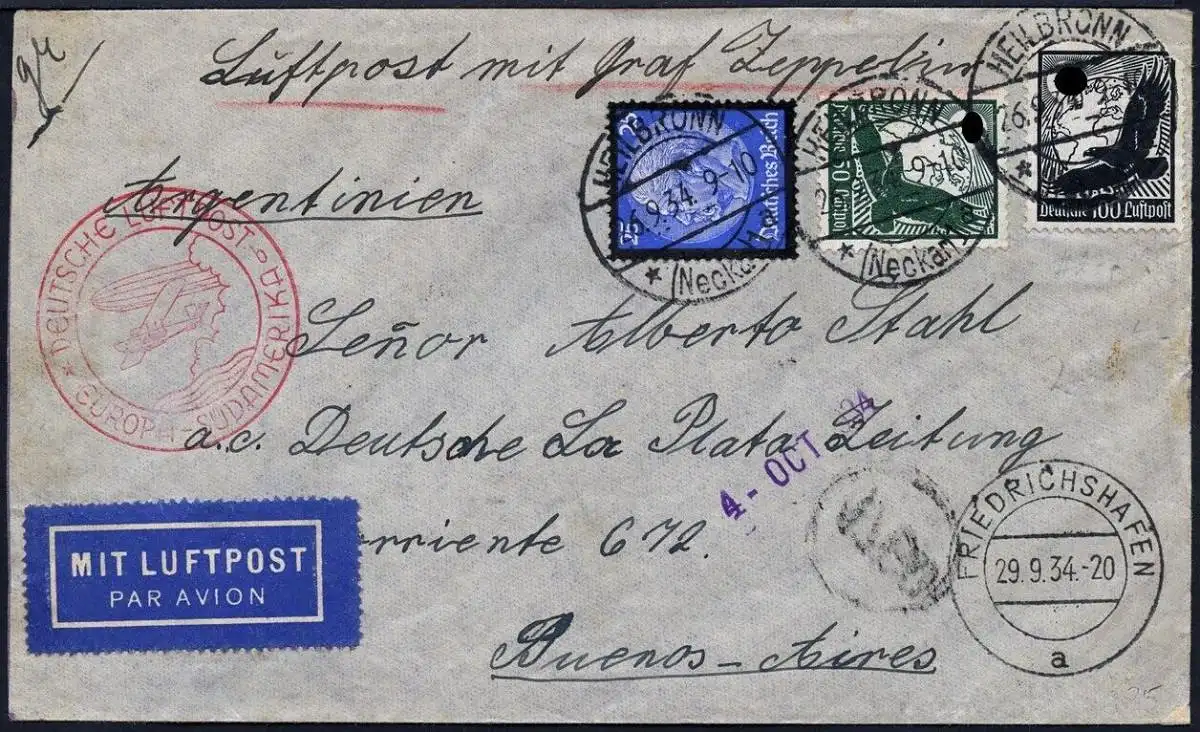 Luftpost mit Graf Zeppelin
Argentinien
HEILBRONN
26.9.34. 9-10
(Neckar)
25
Deutsches Reich
HEILBRONN
9-10
(Neckar)
50
HEILBRONN
26.9.
Deutsche 100 Luftpost
* DEUTSCHE LUFTPOST
EUROPA-SÜDAMERIKA
Señor Alberto Stahl
a.c. Deutsche La Plata Zeitung
4- OCT 34
rriente 672.
MIT LUFTPOST
PAR AVION
FRIEDRICHSHAFEN
29.9.34.-20
a
Buenos-Aires